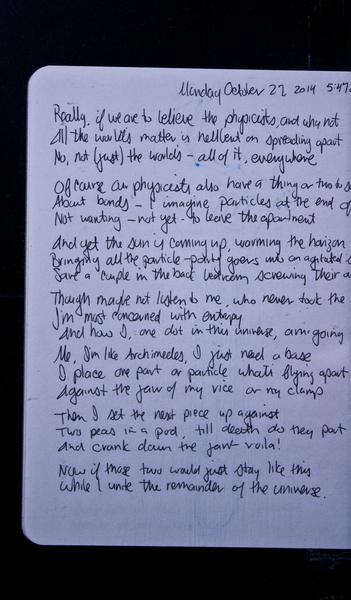 Monday October 27 2014 5:47
Really, if we are to believe the physicists, and why not
All the world's matter is hellbent on spreading apart
No, not (just) the world's - all of it, everywhere
Of course our physicists also have a thing or two to s
About bonds - I imagine particles at the end of
Not wanting - not yet - to leave the apartment
And yet the sun is coming up, warming the horizon
Bringing all the particle-party goers into an agitated s
Save a couple in the back bedroom screwing their a
Though maybe not listen to me, who never took the
I'm most concerned with entropy
And how I, one dot in this universe, am going
Me, I'm like Archimedes, I just need a base
I place one part or particle what's flying apart
Against the jaw of my vice or my clamp
Then I set the next piece up against
Two peas in a pod, till death do they part
And crank down the jaw - voila!
Now if those two would just stay like this
While I unite the remainder of the universe.